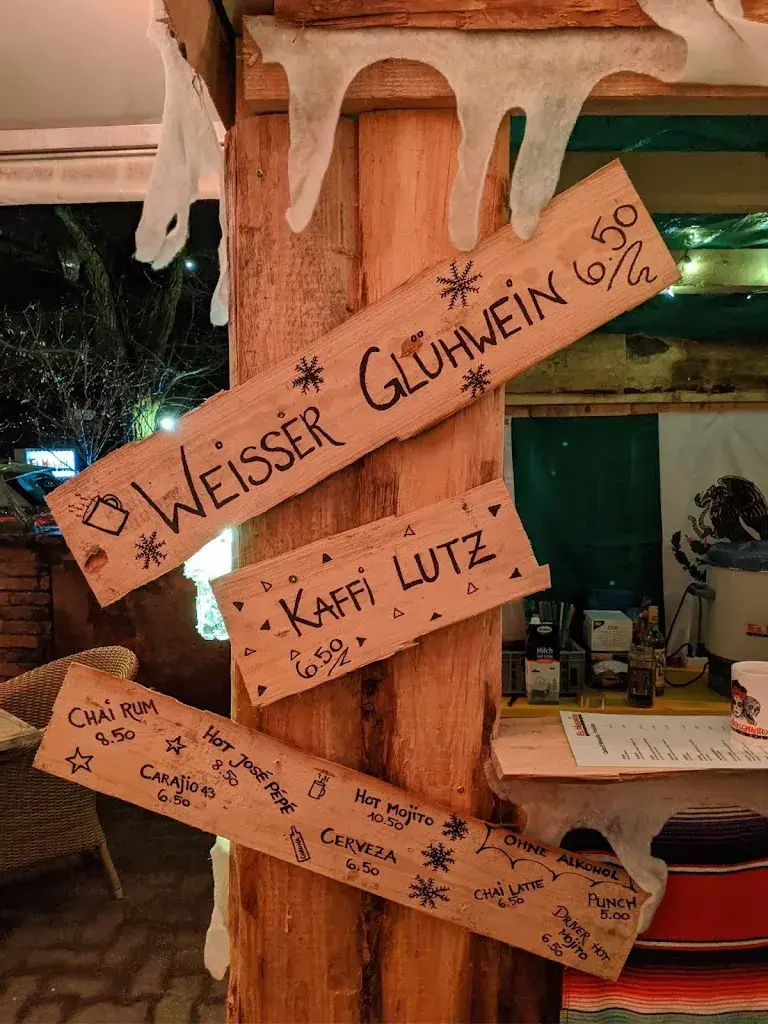 WEISSER GLÜHWEIN 6.50
KAFFI LUTZ
6.50
CHAI RUM
8.50
HOT JOSÉ PÉPÉ
8.50
CARAJIO 43
6.50
HOT MOJITO
10.50
CERVEZA
6.50
OHNE ALKOHOL
CHAI LATTE
6.50
PUNCH
5.00
DRIVER HOT
MOJITO
6.50
Milch